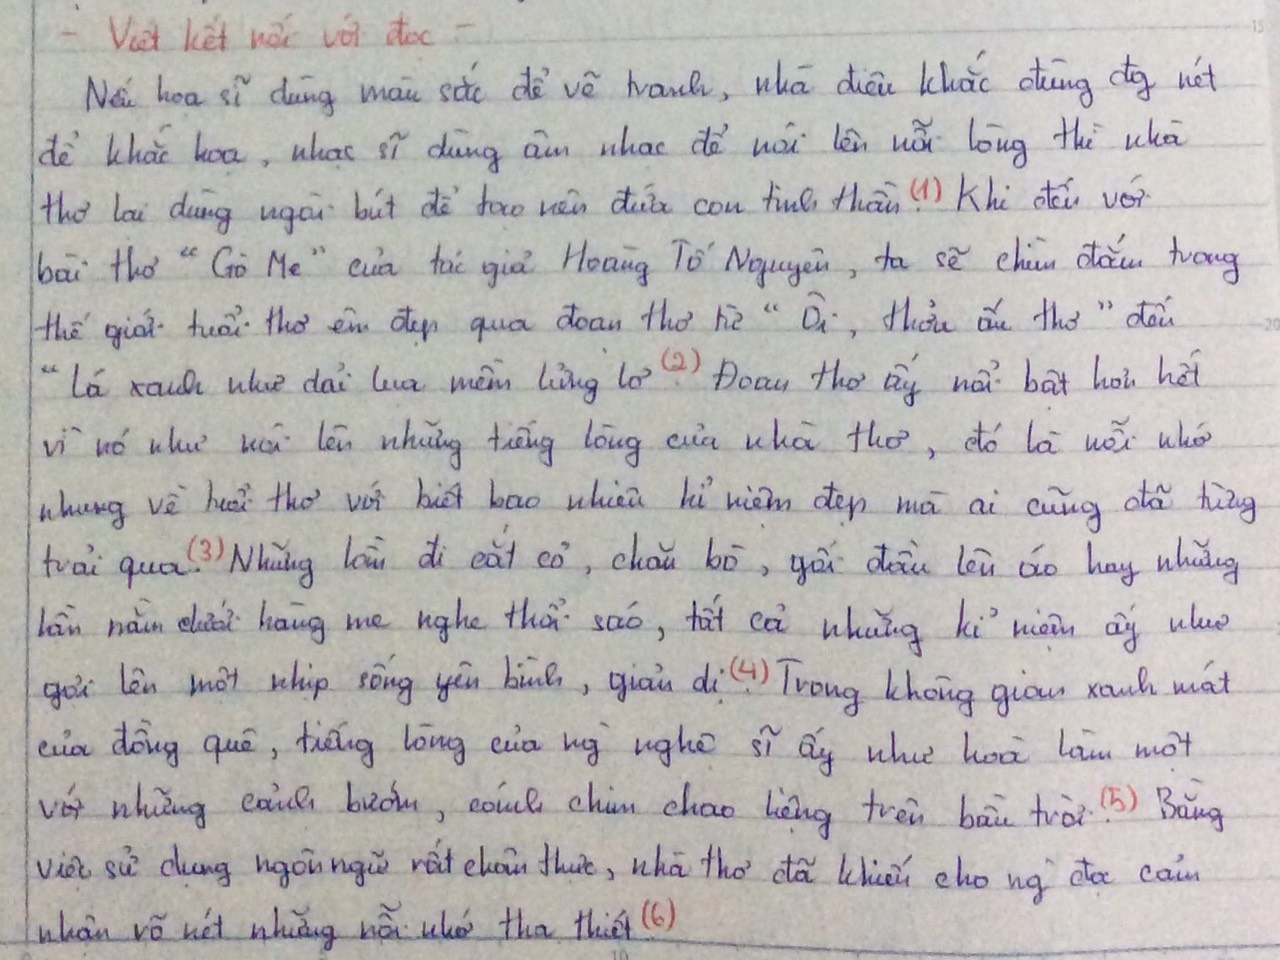 - Viết kết nối với đọc -
Nếu họa sĩ dùng màu sắc để vẽ tranh, nhà điêu khắc dùng đg nét
để khắc họa, nhạc sĩ dùng âm nhạc để nói lên nỗi lòng thì nhà
thơ lại dùng ngòi bút để tạo nên đứa con tinh thần.(1) Khi đến với
bài thơ "Gò Me" của tác giả Hoàng Tố Nguyên, ta sẽ chìm đắm trong
thế giới tuổi thơ êm đẹp qua đoạn thơ từ "Ôi, thuở ấu thơ" đến
"Lá xanh như dải lụa mềm lửng lơ".(2) Đoạn thơ ấy nổi bật hơn hết
vì nó như nói lên những tiếng lòng của nhà thơ, đó là nỗi nhớ
nhung về tuổi thơ với biết bao nhiêu kỉ niệm đẹp mà ai cũng đã từng
trải qua.(3) Những lần đi cắt cỏ, chăn bò, gối đầu lên áo hay những
lần nằm dưới hàng me nghe thổi sáo, tất cả những kỉ niệm ấy như
gợi lên một nhịp sống yên bình, giản dị.(4) Trong không gian xanh mát
của đồng quê, tiếng lòng của ng nghệ sĩ ấy như hoà làm một
với những cánh bướm, cánh chim chao liệng trên bầu trời.(5) Bằng
việc sử dụng ngôn ngữ rất chân thực, nhà thơ đã khiến cho ng đọc cảm
nhận rõ nét những nỗi nhớ tha thiết.(6)